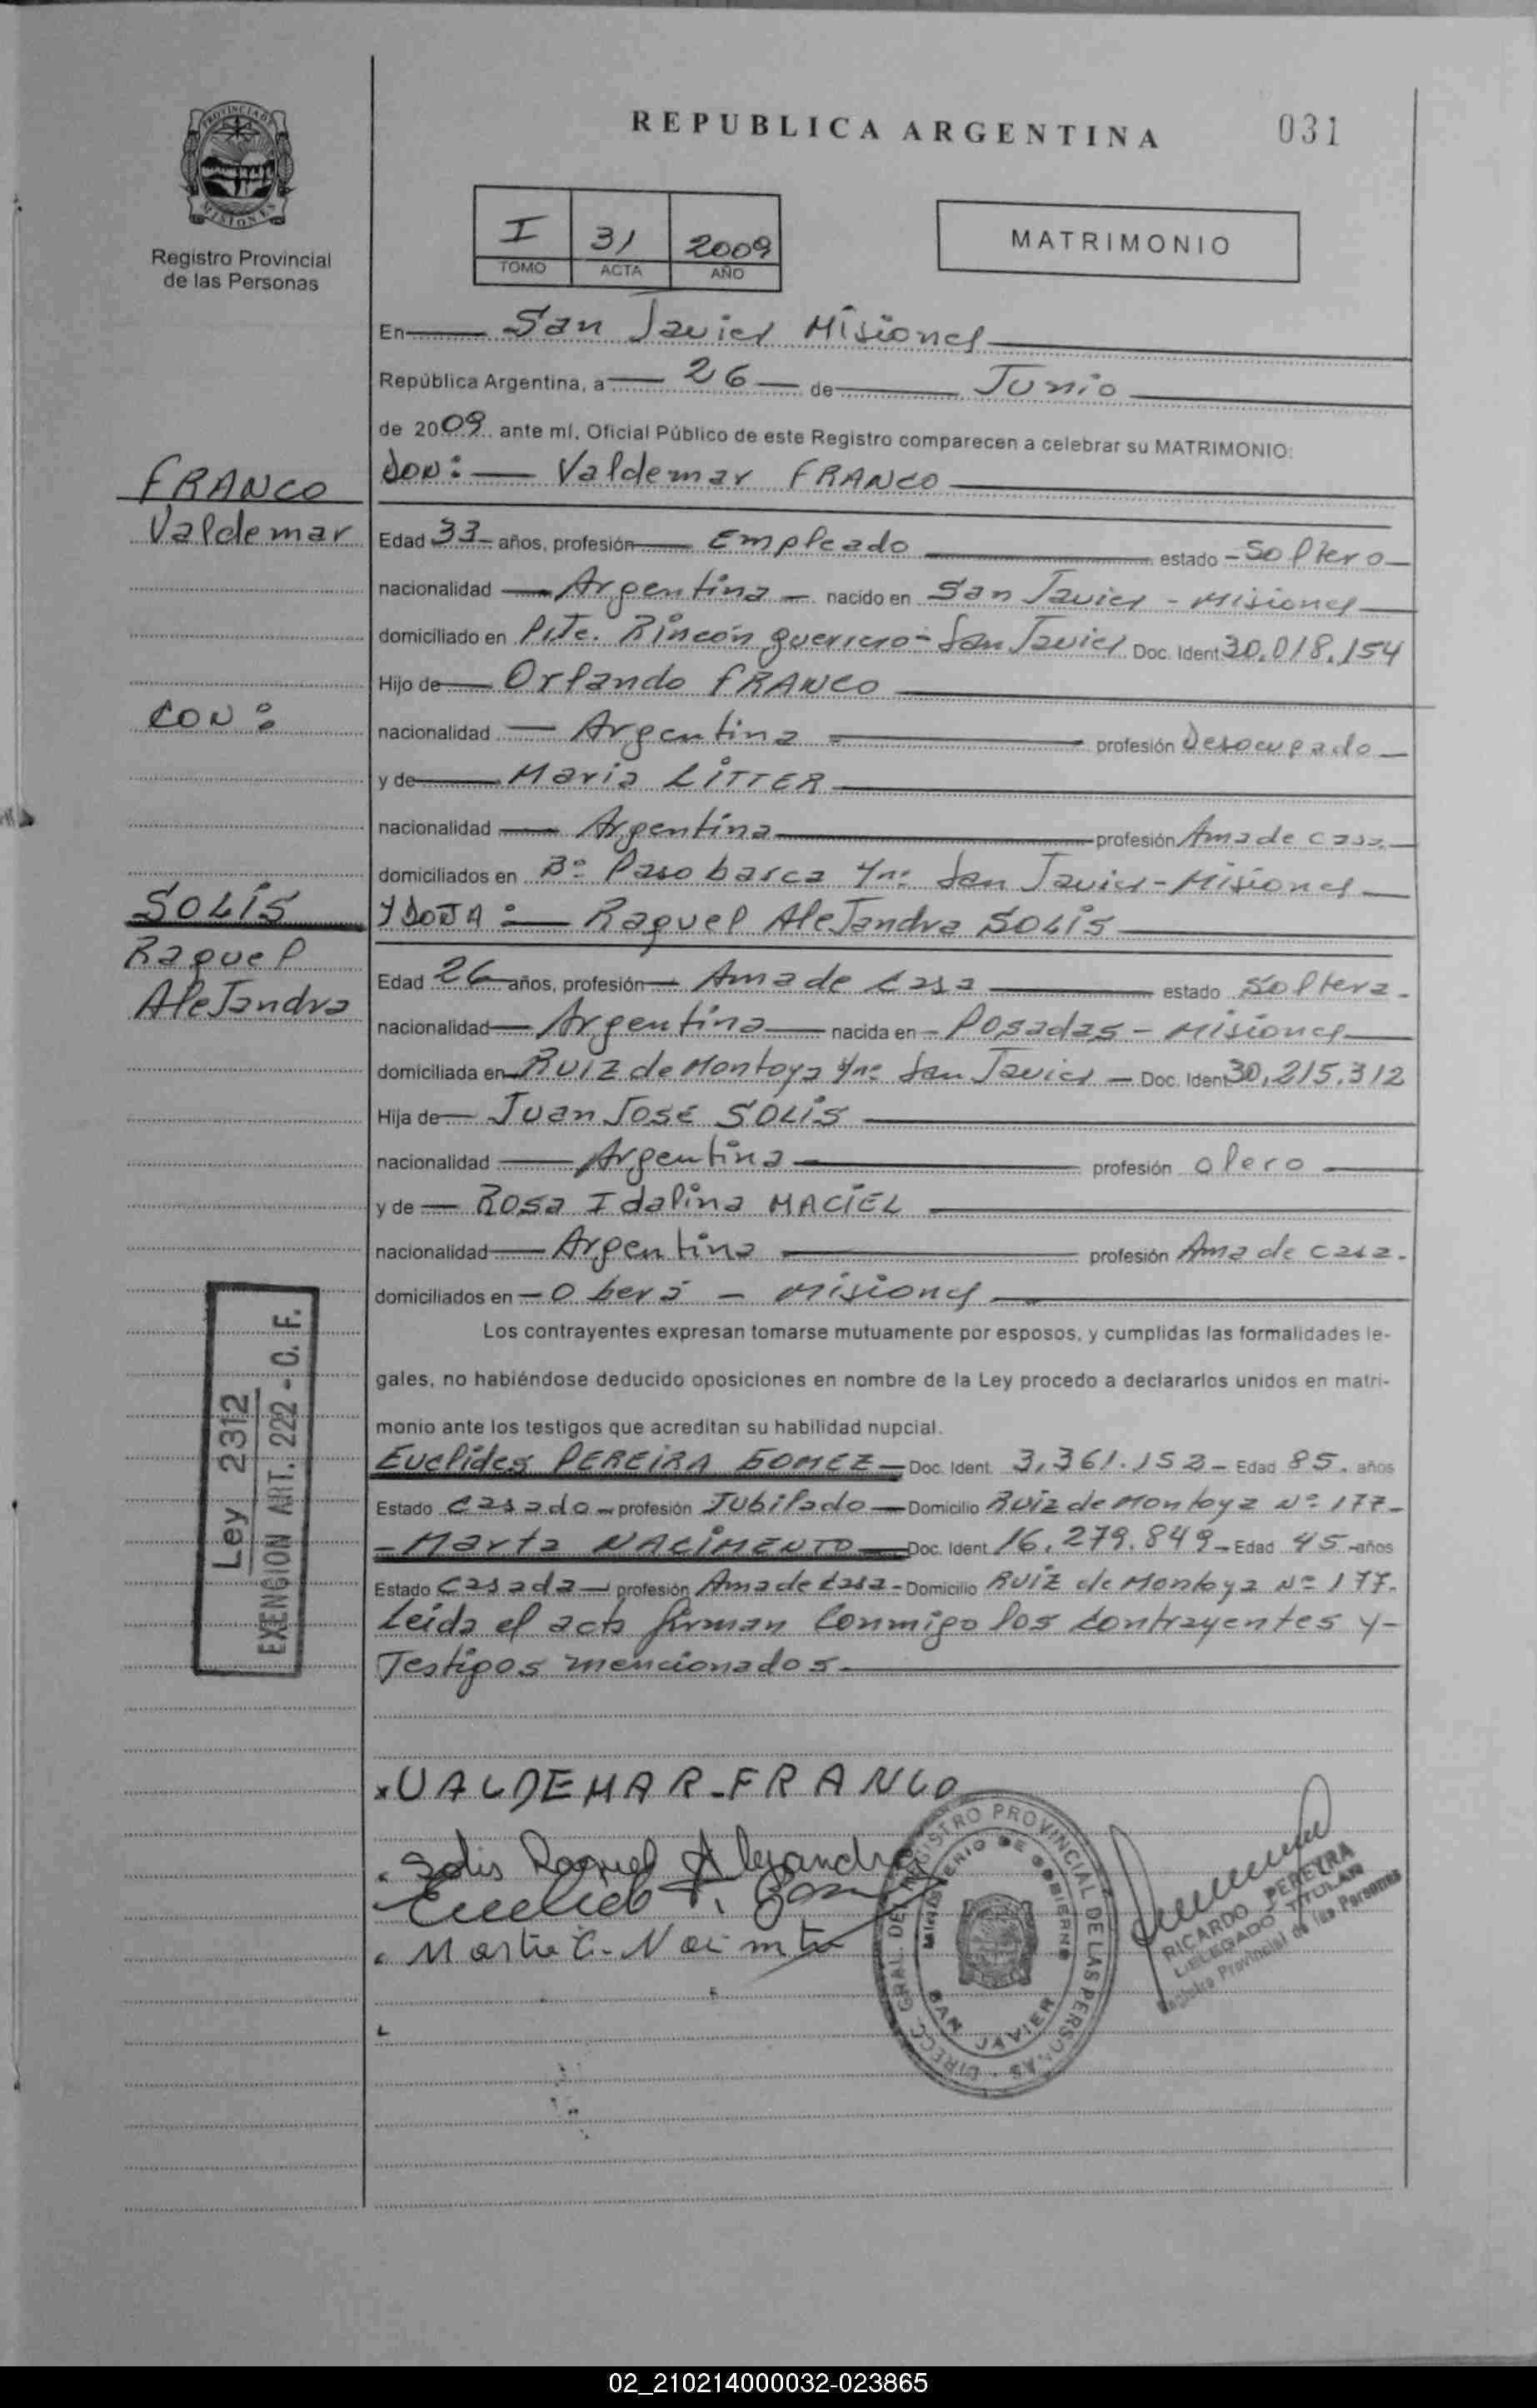 REPUBLICA ARGENTINA
031
PROVINCIA DE
MISIONES
Registro Provincial
de las Personas
I 31 2009
TOMO ACTA AÑO
MATRIMONIO
En San Javier Misiones
República Argentina, a 26 de Junio
de 2009 ante mí, Oficial Público de este Registro comparecen a celebrar su MATRIMONIO:
DON: Valdemar FRANCO
FRANCO
Valdemar
CON:
SOLÍS
Raquel
AleJandra
Edad 33 años, profesión Empleado estado Soltero
nacionalidad Argentina nacido en San Javier - Misiones
domiciliado en Pje. Rincón guerrero - San Javier Doc. Ident 30.018.154
Hijo de Orlando FRANCO
nacionalidad Argentina profesión Desocupado
y de Maria LITTER
nacionalidad Argentina profesión Ama de casa
domiciliados en Bº Paso barca San Javier - Misiones
Y DOÑA: Raquel AleJandra SOLÍS
Edad 26 años, profesión Ama de casa estado Soltera
nacionalidad Argentina nacida en Posadas - Misiones
domiciliada en Ruiz de Montoya San Javier Doc. Ident 30,215.312
Hija de Juan José SOLÍS
nacionalidad Argentina profesión olero
y de Rosa Idalina MACIEL
nacionalidad Argentina profesión Ama de casa
domiciliados en Oberá - Misiones
Los contrayentes expresan tomarse mutuamente por esposos, y cumplidas las formalidades le-
gales, no habiéndose deducido oposiciones en nombre de la Ley procedo a declararlos unidos en matri-
monio ante los testigos que acreditan su habilidad nupcial.
Euclides PEREIRA GOMEZ Doc. Ident. 3,361.152 Edad 85 años
Estado casado profesión Jubilado Domicilio Ruiz de Montoya Nº 177
Marta NACIMENTO Doc. Ident. 16,279.849 Edad 45 años
Estado casada profesión Ama de casa Domicilio Ruiz de Montoya Nº 177.
Leida el acta firman Conmigo los contrayentes y
Testigos mencionados
Ley 2312
EXENCION ART. 222 - C. F.
VALDEMAR-FRANCO
Solis Raquel Alejandra
DIRECC. GRAL. DEL REGISTRO PROVINCIAL DE LAS PERSONAS
MINISTERIO DE GOBIERNO
SAN JAVIER
RICARDO PEREYRA
DELEGADO TITULAR
Registro Provincial de las Personas
02_210214000032-023865